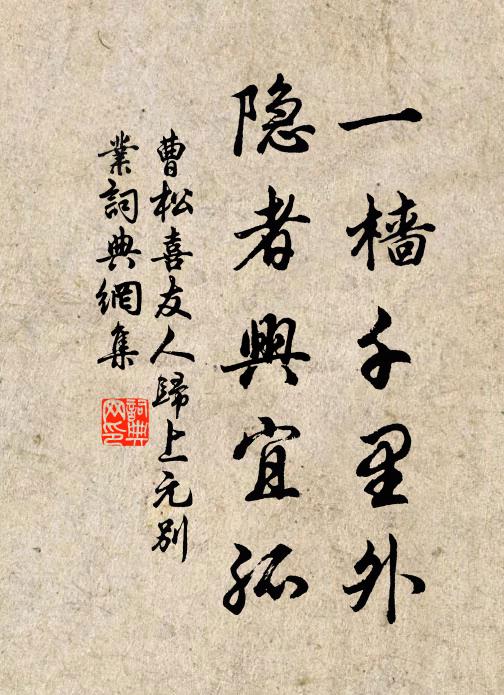 一檣千里外
隐者興宜孤
曹松喜友人歸上元别
業詞典網集
詞典
网印